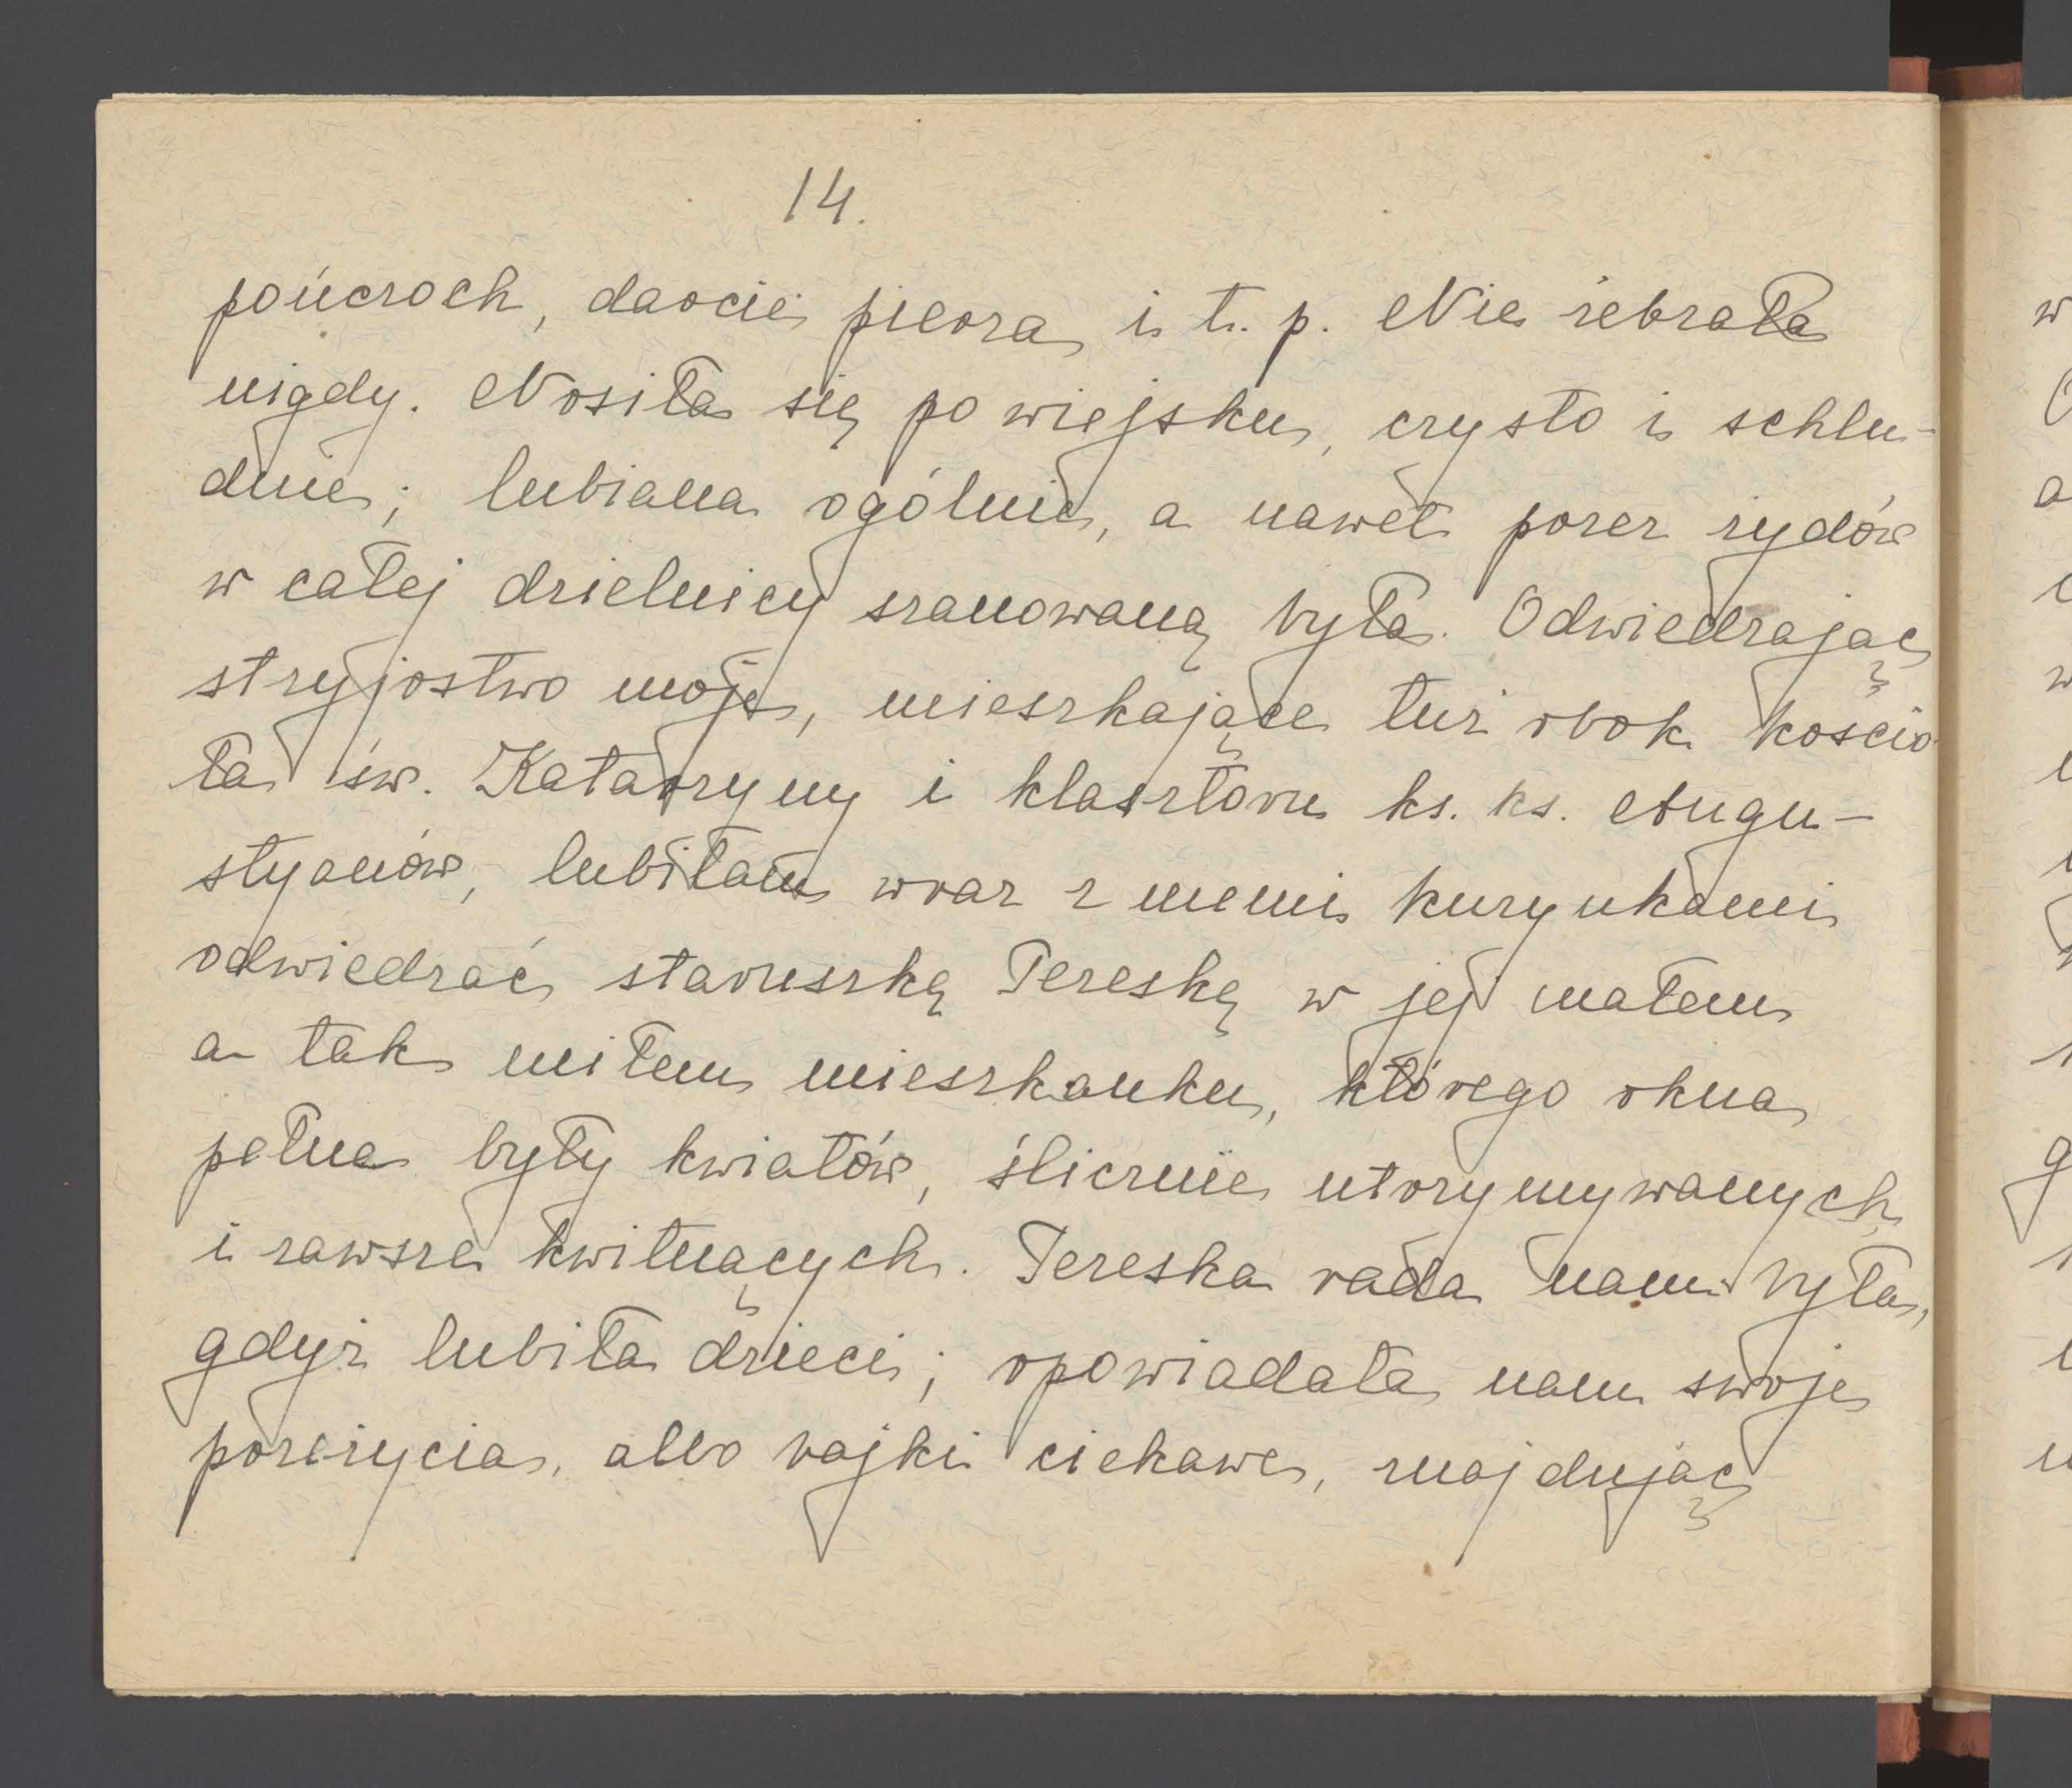 14.
pończoch, darcie pierza i t. p. Nie żebrała
nigdy. Nosiła się po wiejsku, czysto i schlu-
dnie; lubiana ogólnie, a nawet przez żydów
w całej dzielnicy szanowaną była. Odwiedzając
stryjostwo moje, mieszkające tuż obok kościo
ła św. Katarzyny i klasztoru ks. ks. Augu-
styanów, lubiłam wraz z memi kuzynkami
odwiedzać staruszkę Tereskę w jej małem
a tak miłem mieszkanku, którego okna
pełne były kwiatów, ślicznie utrzymywanych
i zawsze kwitnących. Tereska rada nam była,
gdyż lubiła dzieci; opowiadała nam swoje
przeżycia, albo bajki ciekawe, znajdując